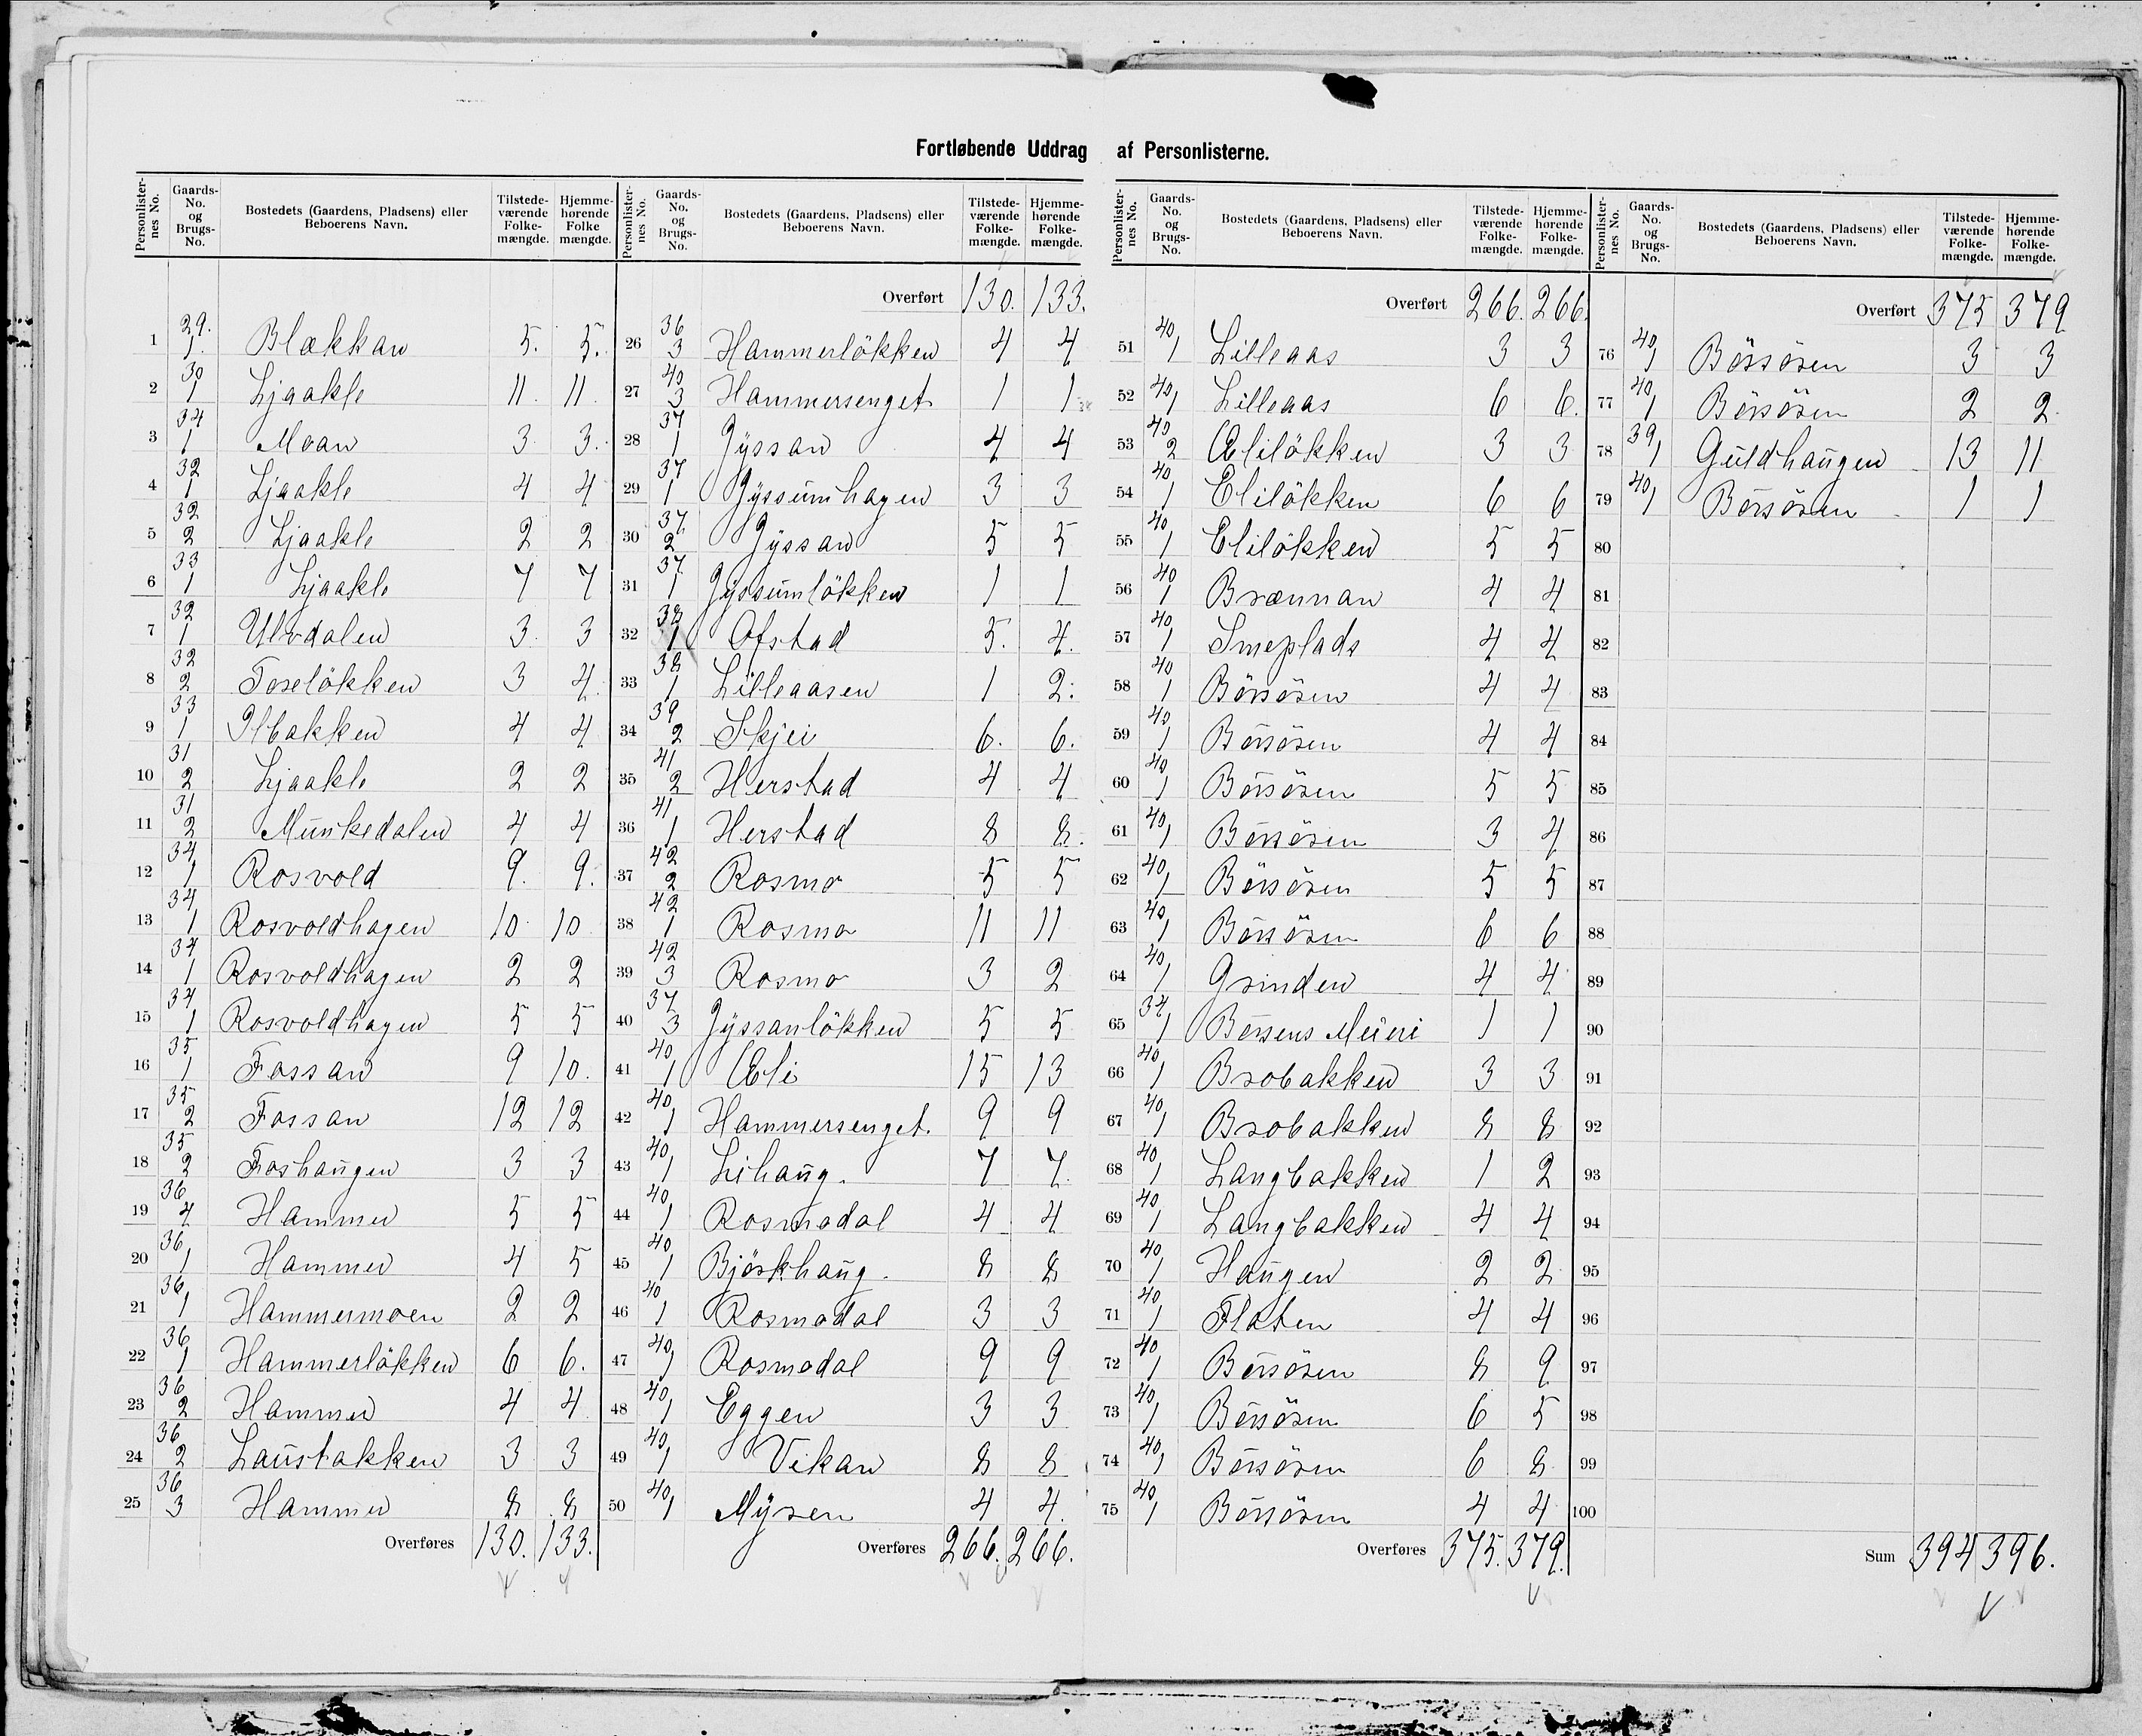 Fortløbende Uddrag af Personlisterne.
Personlisternes No. Gaards-No. og Brugs-No. Bostedets (Gaardens, Pladsens) eller Beboerens Navn. Tilstedeværende Folkemængde. Hjemmehørende Folke mængde.
1 29. 1. Blækkan 5. 5.
2 30 1 Ljaakle 11. 11.
3 34 1 Moan 3. 3.
4 32 1 Ljaakle 4 4
5 32 2 Ljaakle 2 2
6 33 1 Ljaakle 7 7
7 32 1 Ulvdalen 3. 3
8 32 2 Toreløkken 3 4.
9 33 1 Olbakken 4 4
10 31 2 Ljaakle 2 2
11 31 2 Munkedalen 4 4
12 34 1 Rosvold 9. 9.
13 34 1 Rosvoldhagen 10 10
14 34 1 Rosvoldhagen 2 2
15 34 1 Rosvoldhagen 5 5
16 35 1 Fossan 9 10.
17 35 2 Fossan 12 12
18 35 2 Foshaugen 3 3
19 36 4 Hammer 5 5
20 36 1 Hammer 4 5
21 36 1 Hammermoen 2 2
22 36 1 Hammerløkken 6 6.
23 36 2 Hammer 4 4
24 36 2 Laustakken 3 3
25 36 3 Hammer 8 8
Overføres 130. 133.
Personlisternes No. Gaards-No. og Brugs-No. Bostedets (Gaardens, Pladsens) eller Beboerens Navn. Tilstedeværende Folkemængde. Hjemmehørende Folkemængde.
Overført 130. 133.
26 36 3 Hammerlökken 4 4
27 40 3 Hammersenget 1 1
28 37 1 Jyssan 4 4
29 37 1 Jyssumhagen 3 3
30 37. 2 Jyssan 5 5
31 37. 1 Jyssumlökken 1 1
32 38 1 Ofstad 5. 4.
33 38 1 Lilleaasen 1 2.
34 39 2 Skjei 6. 6.
35 41 2 Herstad 4 4
36 41 1 Herstad 8 8.
37 42 2 Rosmo 5 5
38 42 1 Rosmo 11 11
39 42 3 Rosmo 3 2
40 37 3 Jyssanlökken 5 5
41 40 1 Æli 15 13
42 40 1 Hammersenget. 9 9
43 40 1 Lihaug. 7 7.
44 40 1 Rosmodal 4 4
45 40 1 Bjørkhaug. 8 8
46 40 1 Rosmodal 3 3
47 40 1 Rosmodal 9 9
48 40 1 Eggen 3 3
49 40 1 Vikan 8 8
50 40 1 Myren 4 4.
Overføres 266. 266.
Personlisternes No. Gaards-No. og Brugs-No. Bostedets (Gaardens, Pladsens) eller Beboerens Navn. Tilstedeværende Folkemængde. Hjemmehørende Folkemængde.
Overført 266. 266.
51 40 1 Lilleaas 3 3
52 40 1 Lilleaas 6 6.
53 40 2 Ælilökken 3 3
54 40 1 Elilökken 6 6
55 40 1 Elilökken 5 5
56 40 1 Brænnan 4 4
57 40 1 Smeplads 4 4
58 40 1 Börsören 4 4
59 40 1 Börsören 4 4
60 40 1 Börsören 5 5
61 40 1 Börsören 3 4
62 40 1 Börsören 5 5
63 40 1 Börsören 6 6
64 40 1 Grinden 4 4
65 34 1 Børsens Meieri 1 1
66 40 1 Brobakken 3 3
67 40 1 Brobakken 8 8
68 40 1 Langbakken 1 2
69 40 1 Langbakken 4 4
70 40 1 Haugen 2 2
71 40 1 Flaten 4 4
72 40 1 Börsören 8 9
73 40 1 Börsören 6 5
74 40 1 Börsören 6 8
75 40 1 Börsören 4 4
Overføres 375. 379.
Personlisternes No. Gaards-No. og Brugs-No. Bostedets (Gaardens, Pladsens) eller Beboerens Navn. Tilstedeværende Folkemængde. Hjemmehørende Folkemængde.
Overført 375 379
76 40 1 Börsören 3 3
77 40 1 Börsören 2 2
78 39 1 Guldhaugen 13 11
79 40 1 Börsören 1 1
80
81
82
83
84
85
86
87
88
89
90
91
92
93
94
95
96
97
98
99
100
Sum 394 396.